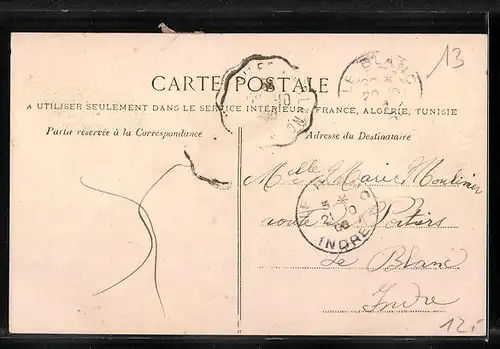 13
LE BLANC
CARTE POSTALE
A UTILISER SEULEMENT DANS LE SERVICE INTÉRIEUR, FRANCE, ALGÉRIE, TUNISIE
Partie réservée à la Correspondance
Adresse du Destinataire
Melle Marie Moulinier
route de Poitiers
INDRE
Le Blanc
Indre
12